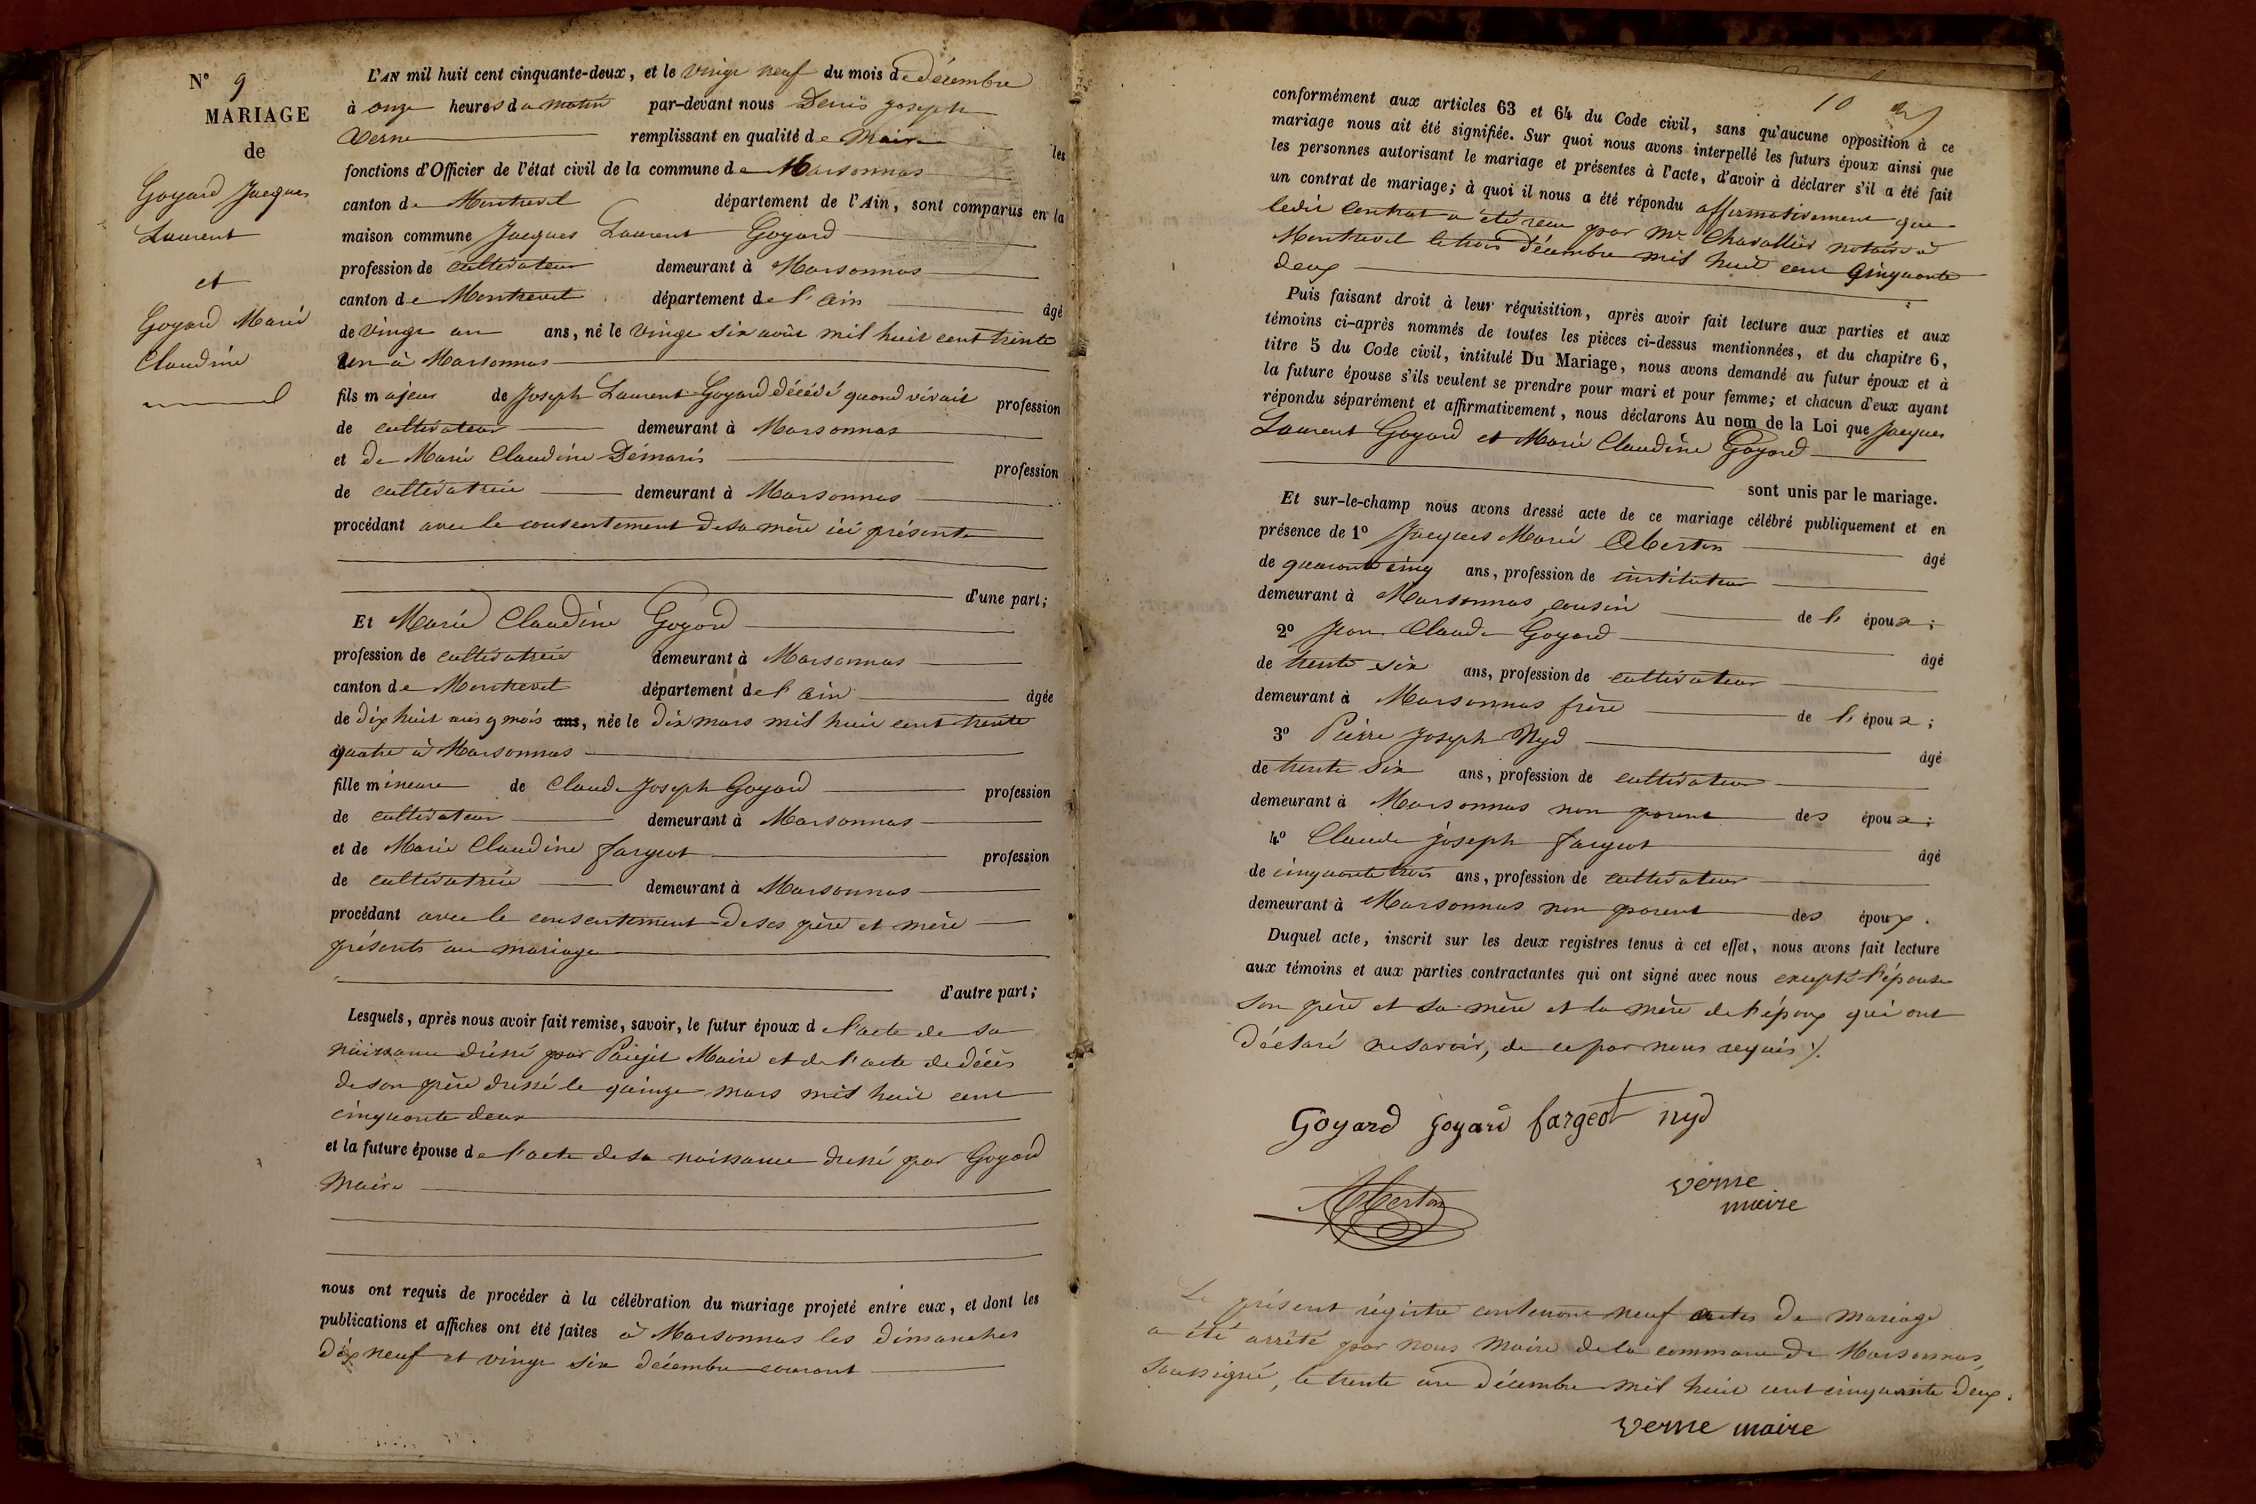 N° 9
MARIAGE
de
Goyard Jacques
Laurent
et
Goyard Marie
Claudine
L'AN mil huit cent cinquante-deux, et le vingt neuf du mois de décembre
à onze heures du matin par-devant nous Denis Joseph
Verne remplissant en qualité de Maire les
fonctions d'Officier de l'état civil de la commune de Marsonnas
canton de Montrevel département de l'Ain, sont comparus en la
maison commune Jacques Laurent Goyard
profession de cultivateur demeurant à Marsonnas
canton de Montrevel département de l'ain âgé
de vingt un ans, né le vingt six août mil huit cent trente
un à Marsonnas
fils majeur de Joseph Laurent Goyard décédé quand vivait profession
de cultivateur demeurant à Marsonnas
et de Marie Claudine Démaris profession
de cultivatrice demeurant à Marsonnas
procédant avec le consentement de sa mère ici présente
d'une part;
Et Marie Claudine Goyard
profession de cultivatrice demeurant à Marsonnas
canton de Montrevel département de l'ain âgée
de dix huit ans 9 mois ans, née le dix mars mil huit cent trente
quatre à Marsonnas
fille mineure de Claude Joseph Goyard profession
de cultivateur demeurant à Marsonnas
et de Marie Claudine fargeot profession
de cultivatrice demeurant à Marsonnas
procédant avec le consentement de ses père et mère
présents au mariage
d'autre part;
Lesquels, après nous avoir fait remise, savoir, le futur époux de l'acte de sa
naissance dressé par Maire et de l'acte de décès
de son père dressé le quinze mars mil huit cent
cinquante deux
et la future épouse de l'acte de sa naissance dressé par Goyard
Maire
nous ont requis de procéder à la célébration du mariage projeté entre eux, et dont les
publications et affiches ont été faites à Marsonnas les dimanches
dix neuf et vingt six décembre courant
10
conformément aux articles 63 et 64 du Code civil, sans qu'aucune opposition à ce
mariage nous ait été signifiée. Sur quoi nous avons interpellé les futurs époux ainsi que
les personnes autorisant le mariage et présentes à l'acte, d'avoir à déclarer s'il a été fait
un contrat de mariage; à quoi il nous a été répondu affirmativement que
ledit contrat a été reçu par Me Chavallier notaire à
Montrevel le trois décembre mil huit cent cinquante
deux
Puis faisant droit à leur réquisition, après avoir fait lecture aux parties et aux
témoins ci-après nommés de toutes les pièces ci-dessus mentionnées, et du chapitre 6,
titre 5 du Code civil, intitulé Du Mariage, nous avons demandé au futur époux et à
la future épouse s'ils veulent se prendre pour mari et pour femme; et chacun d'eux ayant
répondu séparément et affirmativement, nous déclarons Au nom de la Loi que Jacques
Laurent Goyard et Marie Claudine Goyard
sont unis par le mariage.
Et sur-le-champ nous avons dressé acte de ce mariage célébré publiquement et en
présence de 1° Jacques Marie Oberton âgé
de quarante cinq ans, profession de instituteur
demeurant à Marsonnas cousin de l' époux;
2° Jean Claude Goyard âgé
de trente six ans, profession de cultivateur
demeurant à Marsonnas frère de l' époux;
3° Pierre Joseph Nyd âgé
de trente six ans, profession de cultivateur
demeurant à Marsonnas non parent des époux;
4° Claude joseph fargeot âgé
de cinquante trois ans, profession de cultivateur
demeurant à Marsonnas non parent des époux.
Duquel acte, inscrit sur les deux registres tenus à cet effet, nous avons fait lecture
aux témoins et aux parties contractantes qui ont signé avec nous excepté l'épouse
son père et sa mère et la mère de l'époux qui ont
déclaré ne savoir, de ce par nous requis
Goyard goyard fargeot nyd
Oberton
verne
maire
Le présent régistre contenant neuf actes de mariage
a été arrêté par nous Maire de la commune de Marsonnas
soussigné, le trente un décembre mil huit cent cinquante deux.
verne maire